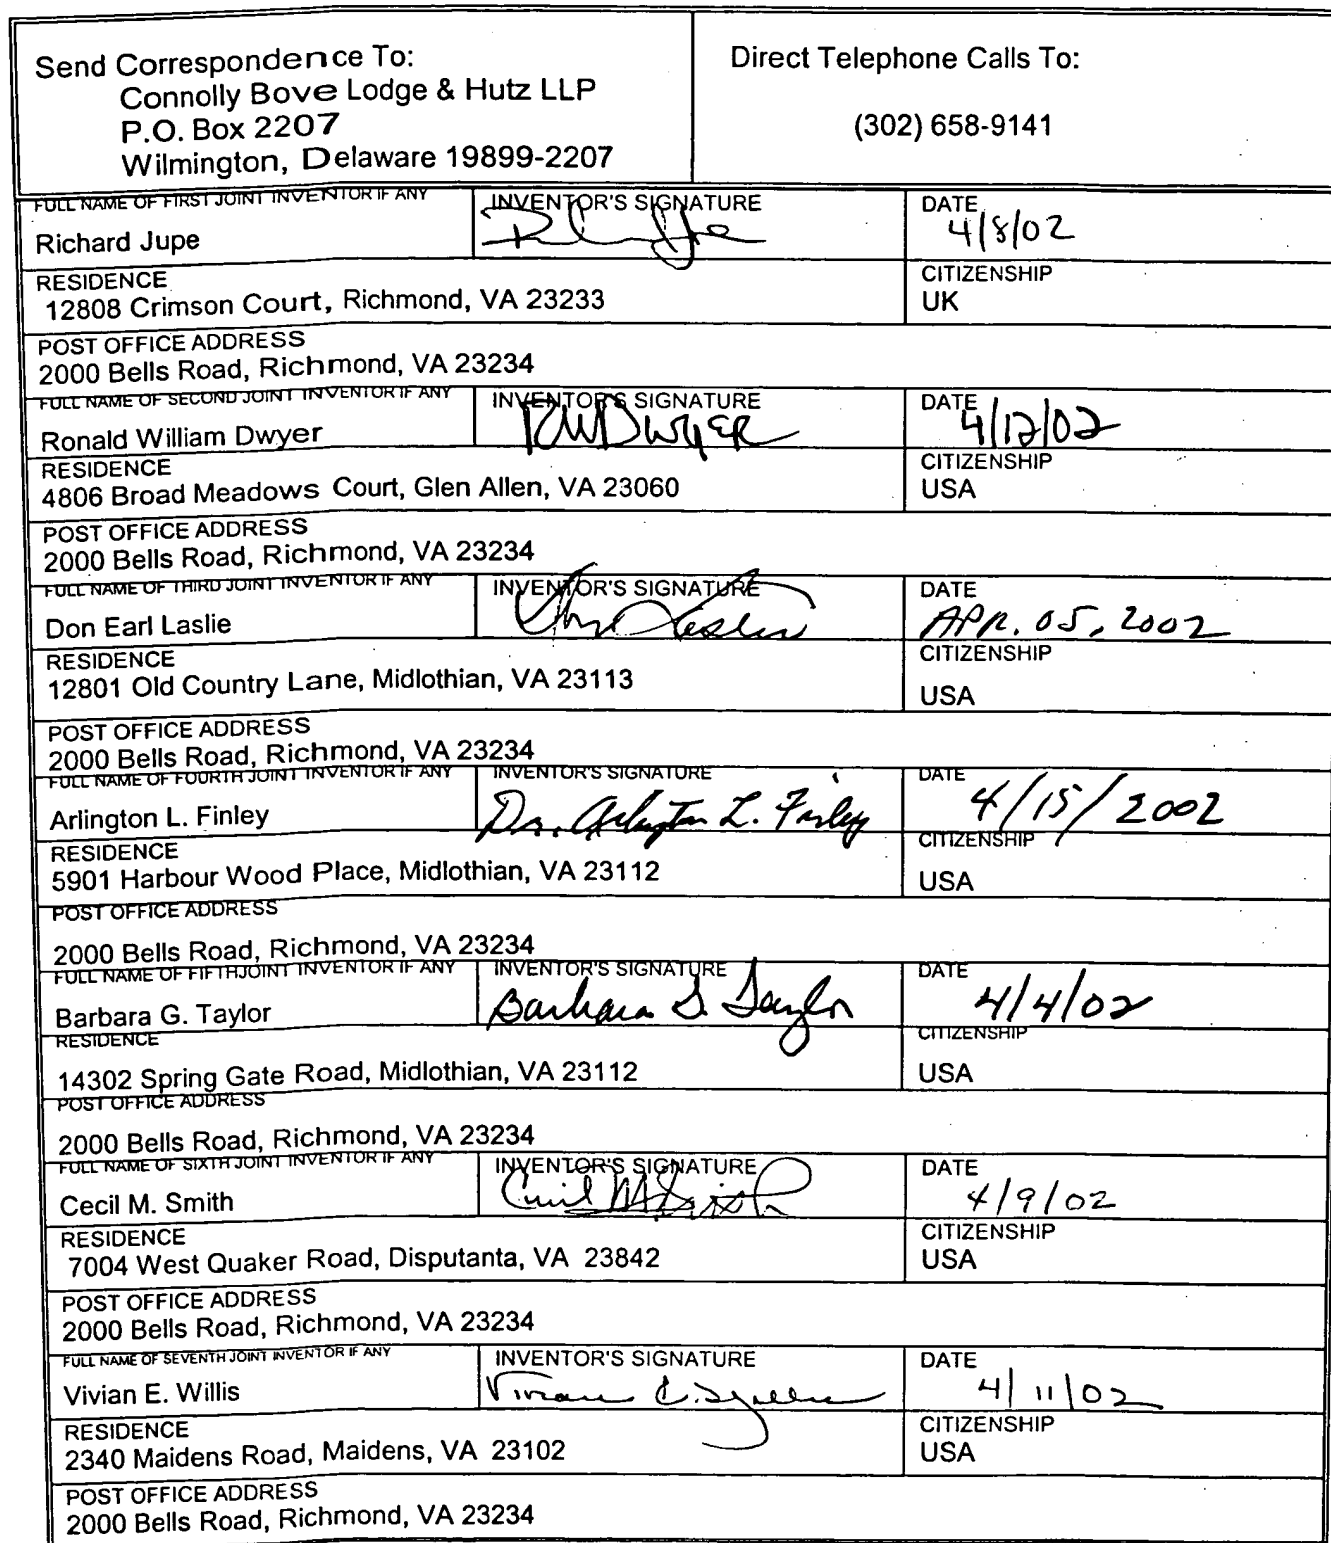 Send Correspondence To:
Connolly Bove Lodge & Hutz LLP
P.O. Box 2207
Wilmington, Delaware 19899-2207
Direct Telephone Calls To:
(302) 658-9141
FULL NAME OF FIRST JOINT INVENTOR IF ANY
Richard Jupe
INVENTOR'S SIGNATURE
DATE
4/8/02
RESIDENCE
12808 Crimson Court, Richmond, VA 23233
CITIZENSHIP
UK
POST OFFICE ADDRESS
2000 Bells Road, Richmond, VA 23234
FULL NAME OF SECOND JOINT INVENTOR IF ANY
Ronald William Dwyer
INVENTOR'S SIGNATURE
RWDwyer
DATE
4/12/02
RESIDENCE
4806 Broad Meadows Court, Glen Allen, VA 23060
CITIZENSHIP
USA
POST OFFICE ADDRESS
2000 Bells Road, Richmond, VA 23234
FULL NAME OF THIRD JOINT INVENTOR IF ANY
Don Earl Laslie
INVENTOR'S SIGNATURE
DATE
APR. 05, 2002
RESIDENCE
12801 Old Country Lane, Midlothian, VA 23113
CITIZENSHIP
USA
POST OFFICE ADDRESS
2000 Bells Road, Richmond, VA 23234
FULL NAME OF FOURTH JOINT INVENTOR IF ANY
Arlington L. Finley
INVENTOR'S SIGNATURE
Dr. Arlington L. Finley
DATE
4/15/2002
RESIDENCE
5901 Harbour Wood Place, Midlothian, VA 23112
CITIZENSHIP
USA
POST OFFICE ADDRESS
2000 Bells Road, Richmond, VA 23234
FULL NAME OF FIFTHJOINT INVENTOR IF ANY
Barbara G. Taylor
INVENTOR'S SIGNATURE
Barbara G. Taylor
DATE
4/4/02
RESIDENCE
14302 Spring Gate Road, Midlothian, VA 23112
CITIZENSHIP
USA
POST OFFICE ADDRESS
2000 Bells Road, Richmond, VA 23234
FULL NAME OF SIXTH JOINT INVENTOR IF ANY
Cecil M. Smith
INVENTOR'S SIGNATURE
Cecil M Smith
DATE
4/9/02
RESIDENCE
7004 West Quaker Road, Disputanta, VA 23842
CITIZENSHIP
USA
POST OFFICE ADDRESS
2000 Bells Road, Richmond, VA 23234
FULL NAME OF SEVENTH JOINT INVENTOR IF ANY
Vivian E. Willis
INVENTOR'S SIGNATURE
Vivian E. Willis
DATE
4/11/02
RESIDENCE
2340 Maidens Road, Maidens, VA 23102
CITIZENSHIP
USA
POST OFFICE ADDRESS
2000 Bells Road, Richmond, VA 23234